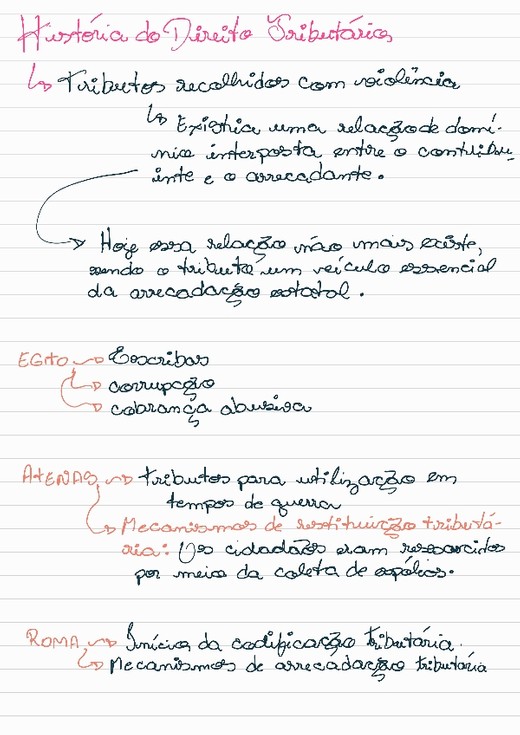 História do Direito Tributário
↳ Tributos recolhidos com violência
↳ Existia uma relação de domí-
nio interposta entre o contribu-
inte e o arrecadante.
→ Hoje essa relação não mais existe,
sendo o tributo um veículo essencial
da arrecadação estatal.
EGITO → Escribas
→ corrupção
→ cobrança abusiva
ATENAS → tributos para utilização em
tempos de guerra
→ Mecanismos de restituição tributá-
ria: Os cidadãos eram ressarcidos
por meio da coleta de espólios.
ROMA → Início da codificação tributária.
→ Mecanismos de arrecadação tributária